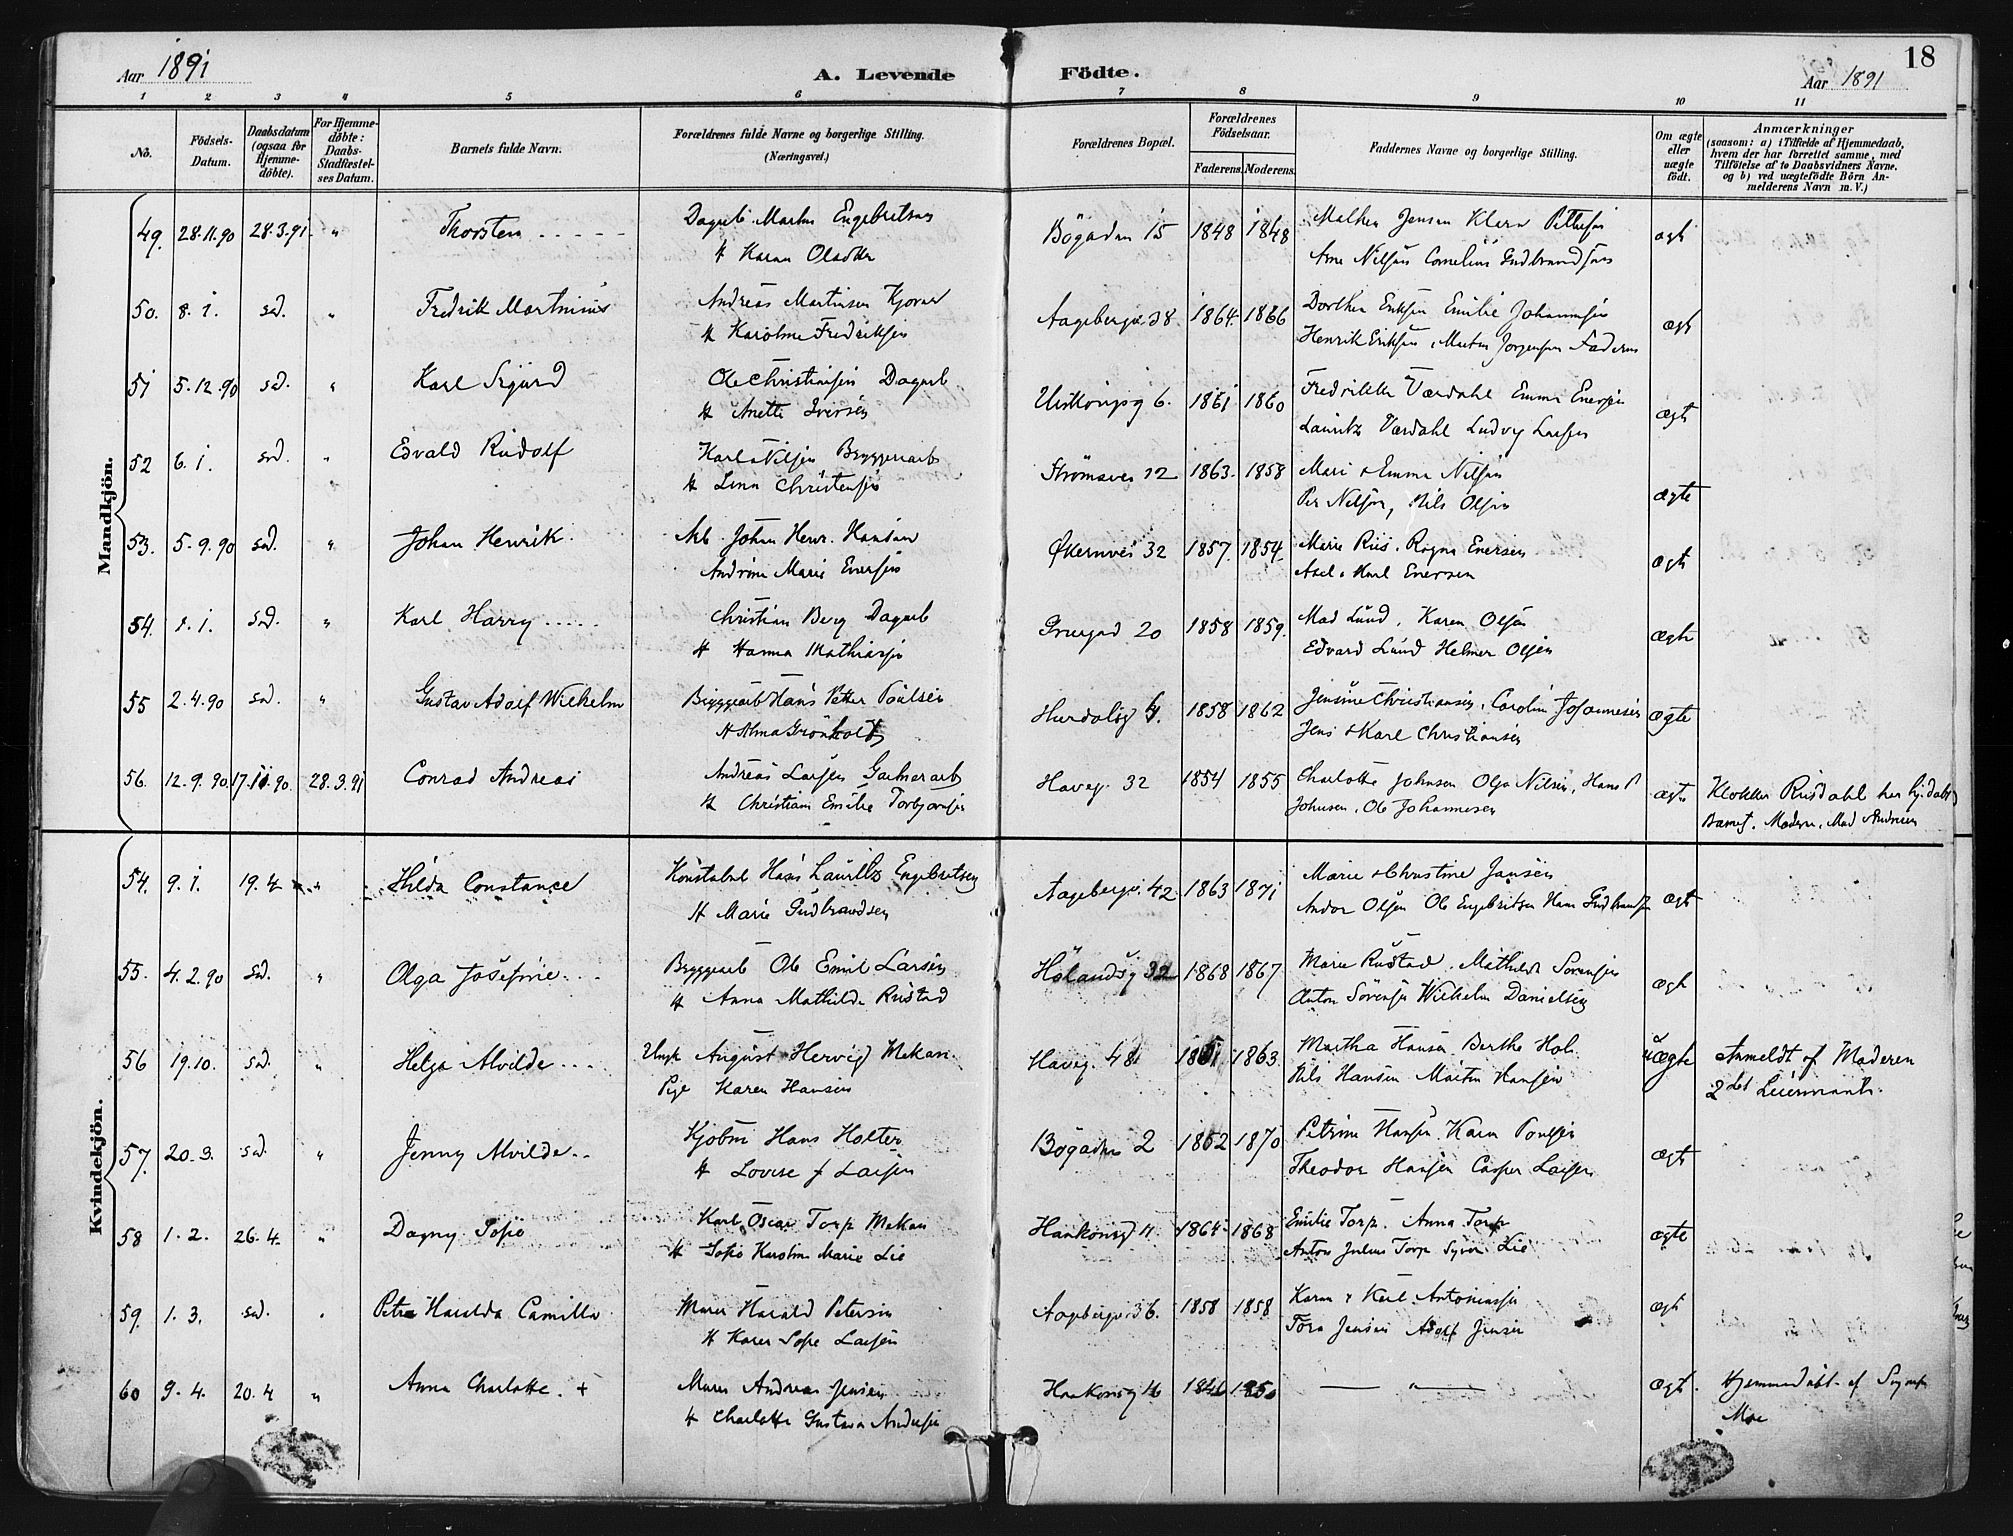 Aar 1891
A. Levende Födte.
Aar 1891
18
1 2 3 4 5 6 7 8 9 10 11
No.
Födsels-Datum.
Daabsdatum (ogsaa for Hjemmedöbte).
For Hjemmedöbte: Daabs-Stadfæstelses Datum.
Barnets fulde Navn.
Forældrenes fulde Navne og borgerlige Stilling.
(Næringsvei.)
Forældrenes Bopæl.
Forældrenes Födselsaar.
Faderens. Moderens.
Faddernes Navne og borgerlige Stilling.
Om ægte eller uægte födt.
Anmærkninger
(saasom: a) i Tilfælde af Hjemmedaab, hvem der har forrettet samme, med Tilföielse af to Daabsvidners Navne. og b) ved uægtefödte Börn Anmelderens Navn m. V.)
Mandkjön.
49. 28.11.90 28.3.91 " Thorsten Dagarb. Martin Engebretsen Bögaden 15 1848 1848 Mathea Jensen Klara Pettersen ægt
H Karen Olsdtr Arne Nilsen Cornelius Gudbrandsen
50. 8.1. sd. " Fredrik Martinius Andreas Martinsen Aagebergv. 38. 1864. 1866 Dorthea Eriksen Emilie Johannesen ægt
H Karoline Fredriksen Henrik Eriksen, Martin Jørgensen Faderen
51 5.12.90 sd. " Karl Sigurd Ole Christiansen Dagarb 6. 1861 1860 Fredrikke Værdahl Emma Enersen ægte
H Anette Iversen Lauritz Værdahl Ludvig Larsen
52 6.1. sd. " Edvald Rudolf Karl Nilsen Bryggeriarb Strømsvei 12 1863. 1858 Mari & Emma Nilsen ægte
H Lina Christensen Per Nilsen, Nils Olsen
53. 5.9.90 sd. " Johan Henrik. Arb. Johan Henr. Hansen Økernvei 32 1857. 1854. Marie Riis. Ragna Enersen ægte
Andrine Marie Enersen Axel & Karl Enersen
54. 1.1. sd. " Karl Harry Christian Berg Dagarb Gruegad 20 1858 1859. Mad Lund, Karen Olsen ægte
H Hanna Mathiasen Edvard Lund Helmer Olsen
55 2.4.90 sd. " Gustav Adolf Wilhelm Bryggearb Hans Petter Poulsen Hurdalsg 4. 1858 1862 Jensine Christiansen, Caroline Johannesen ægte
H Alma Jens & Karl Christiansen
56. 12.9.90 17.11.90. 28.3.91 Conrad Andreas Andreas Larsen Gartnerarb Haveg. 32 1854 1855 Charlotte Johnsen Olga Nilsen, Hans P ægte Klokker Riisdahl har hj.døbt
H Christiane Emilie Torbjørnsen Johnsen, Ole Johannesen Barnet. Moderen, Mad Andersen
Kvindekjön.
54. 9.1. 19.4 " Hilda Constance Konstabel Hans Lauritz Engebretsen Aagebergv. 42 1863 1871 Marie & Christine Jansen ægt
H Marie Gudbrandsen Andor Olsen Ole Engebretsen Hans Gudbrandsen
55. 4.2.90 sd. " Olga Josefine Bryggearb Ole Emil Larsen Hölandsg 32 1868 1867 Marie Rustad. Mathilde Sørensen ægte
H Anna Mathilde Rustad Anton Sørensen Wilhelm Danielsen
56 19.10. sd. " Helga Alvilde Ungk August Hervig Mekan. Haveg. 48 1861 1863. Martha Hansen Berthe Hol. uægte Anmeldt af Moderen
Pge Karen Hansen Nils Hansen Martin Hansen 2det Leiermaal.
57. 20.3. sd. " Jenny Alvilde Kjøbm Hans Holter Bögaden 2 1862 1870 Petrine Hansen. Karen Poulsen ægte
H Lovise f Larsen Theodor Hansen Casper Larsen
58 1.2. 26.4. " Dagny Sofie Karl Oscar Torp Mekan Haakonsg 11. 1864 1868 Emilie Torp. Anna Torp ægte
H Sofie Karoline Marie Lie Anton Julius Torp Syver Lie
59. 1.3. sd. " Petra Haralda Camilla Murer Harald Petersen Aagebergv. 36. 1858 1858 Karen & Karl Antoniussen ægt
H Karen Sofie Larsen Tora Jensen Adolf Jensen
60 9.4. 20.4 " Anna Charlotte. + Murer Andreas Jensen Haakonsg 16 1846 1850 — " — ægt. Hjemmedøbt af
H Charlotte Gustava Andersen Moe